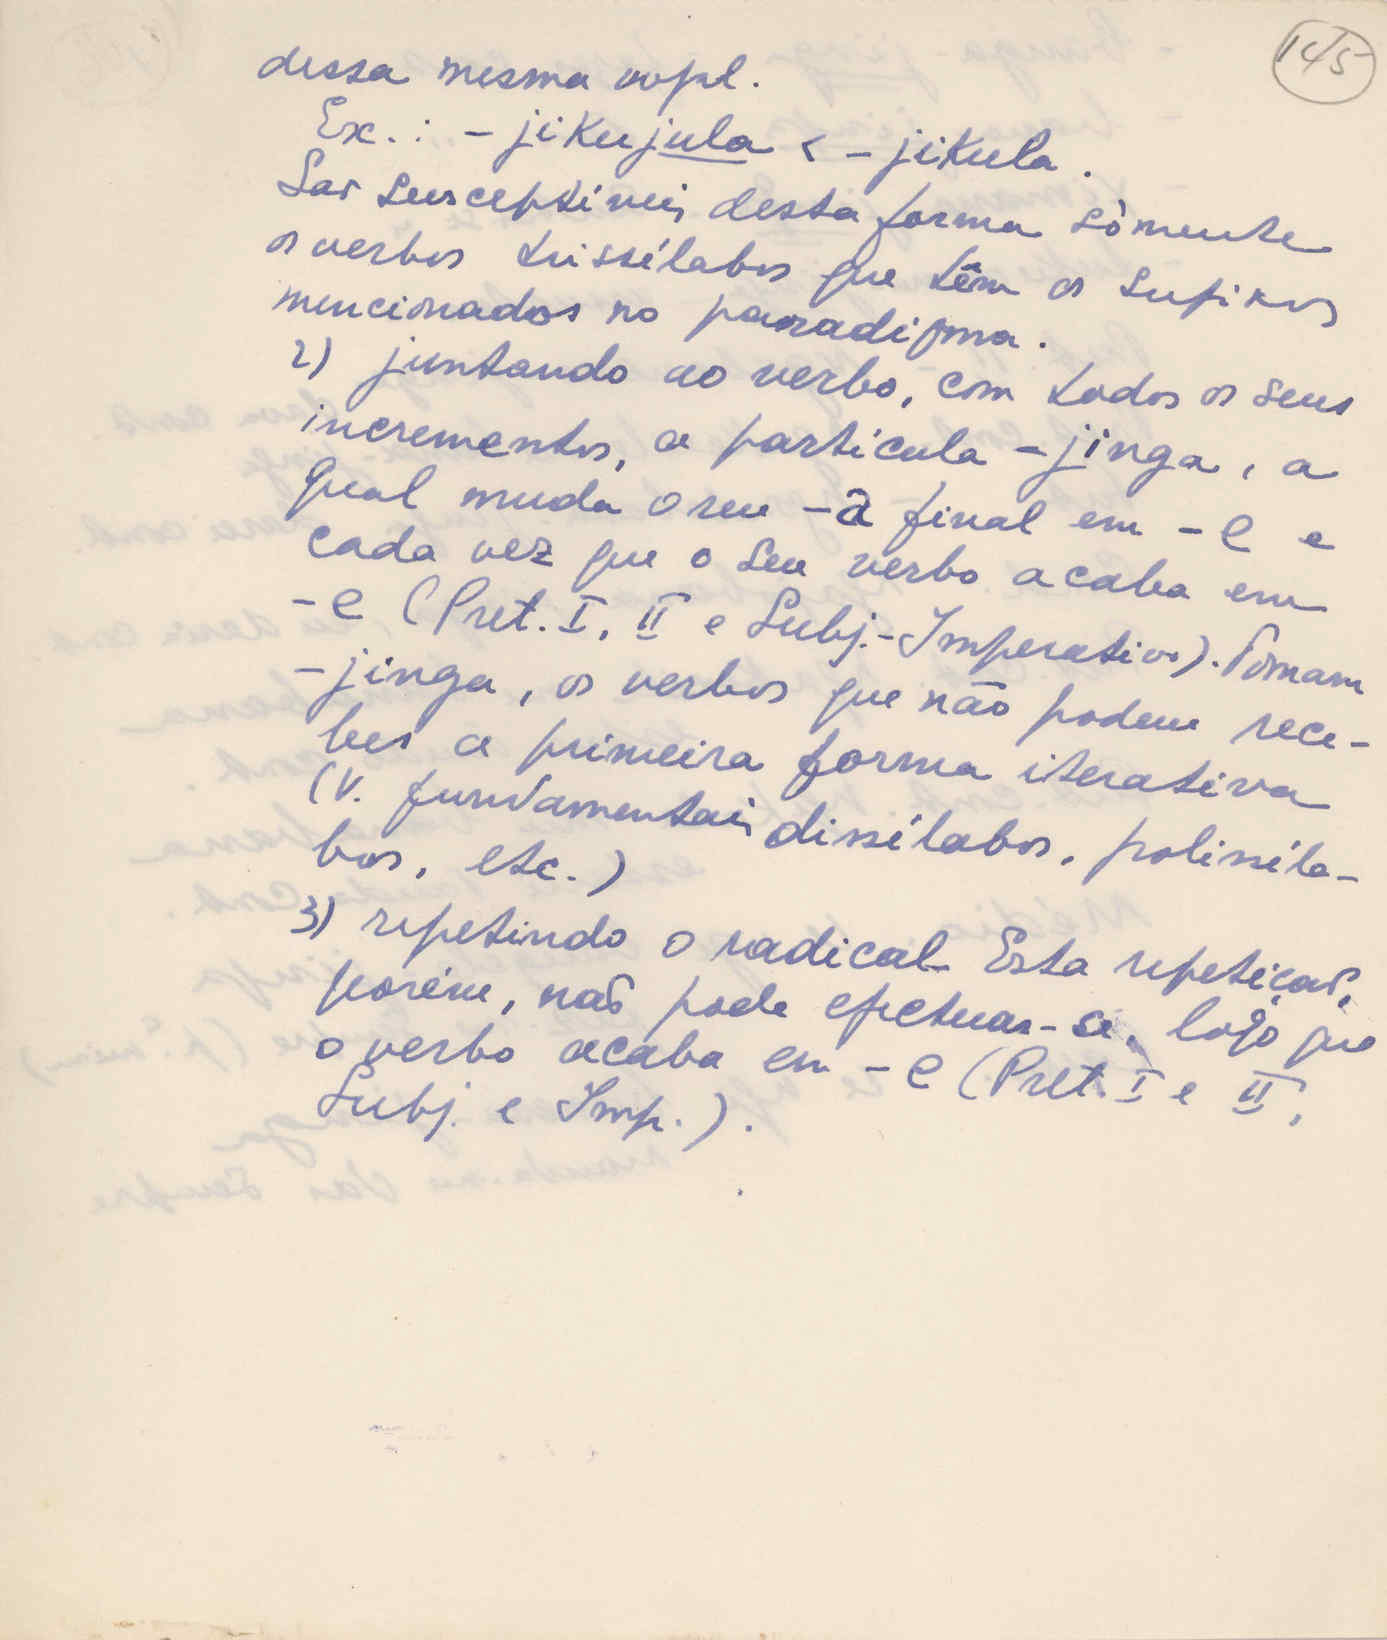 145
dessa mesma vogal.
Ex.: - jikujula < - jikula.
São susceptíveis desta forma sòmente
os verbos trissílabos que têm os sufixos
mencionados no paradigma.
2) juntando ao verbo, com todos os seus
incrementos, a partícula -jinga, a
qual muda o seu -a final em -e e
cada vez que o seu verbo acaba em
-e (Pret. I, II e Subj.-Imperativo). Tomam
-jinga, os verbos que não podem rece-
ber a primeira forma iterativa
(V. fundamentais dissílabos, polissíla-
bos, etc.)
3) repetindo o radical. Esta repetição,
porém, não pode efectuar-se, logo que
o verbo acaba em -e (Pret. I e II,
Subj. e Imp.).